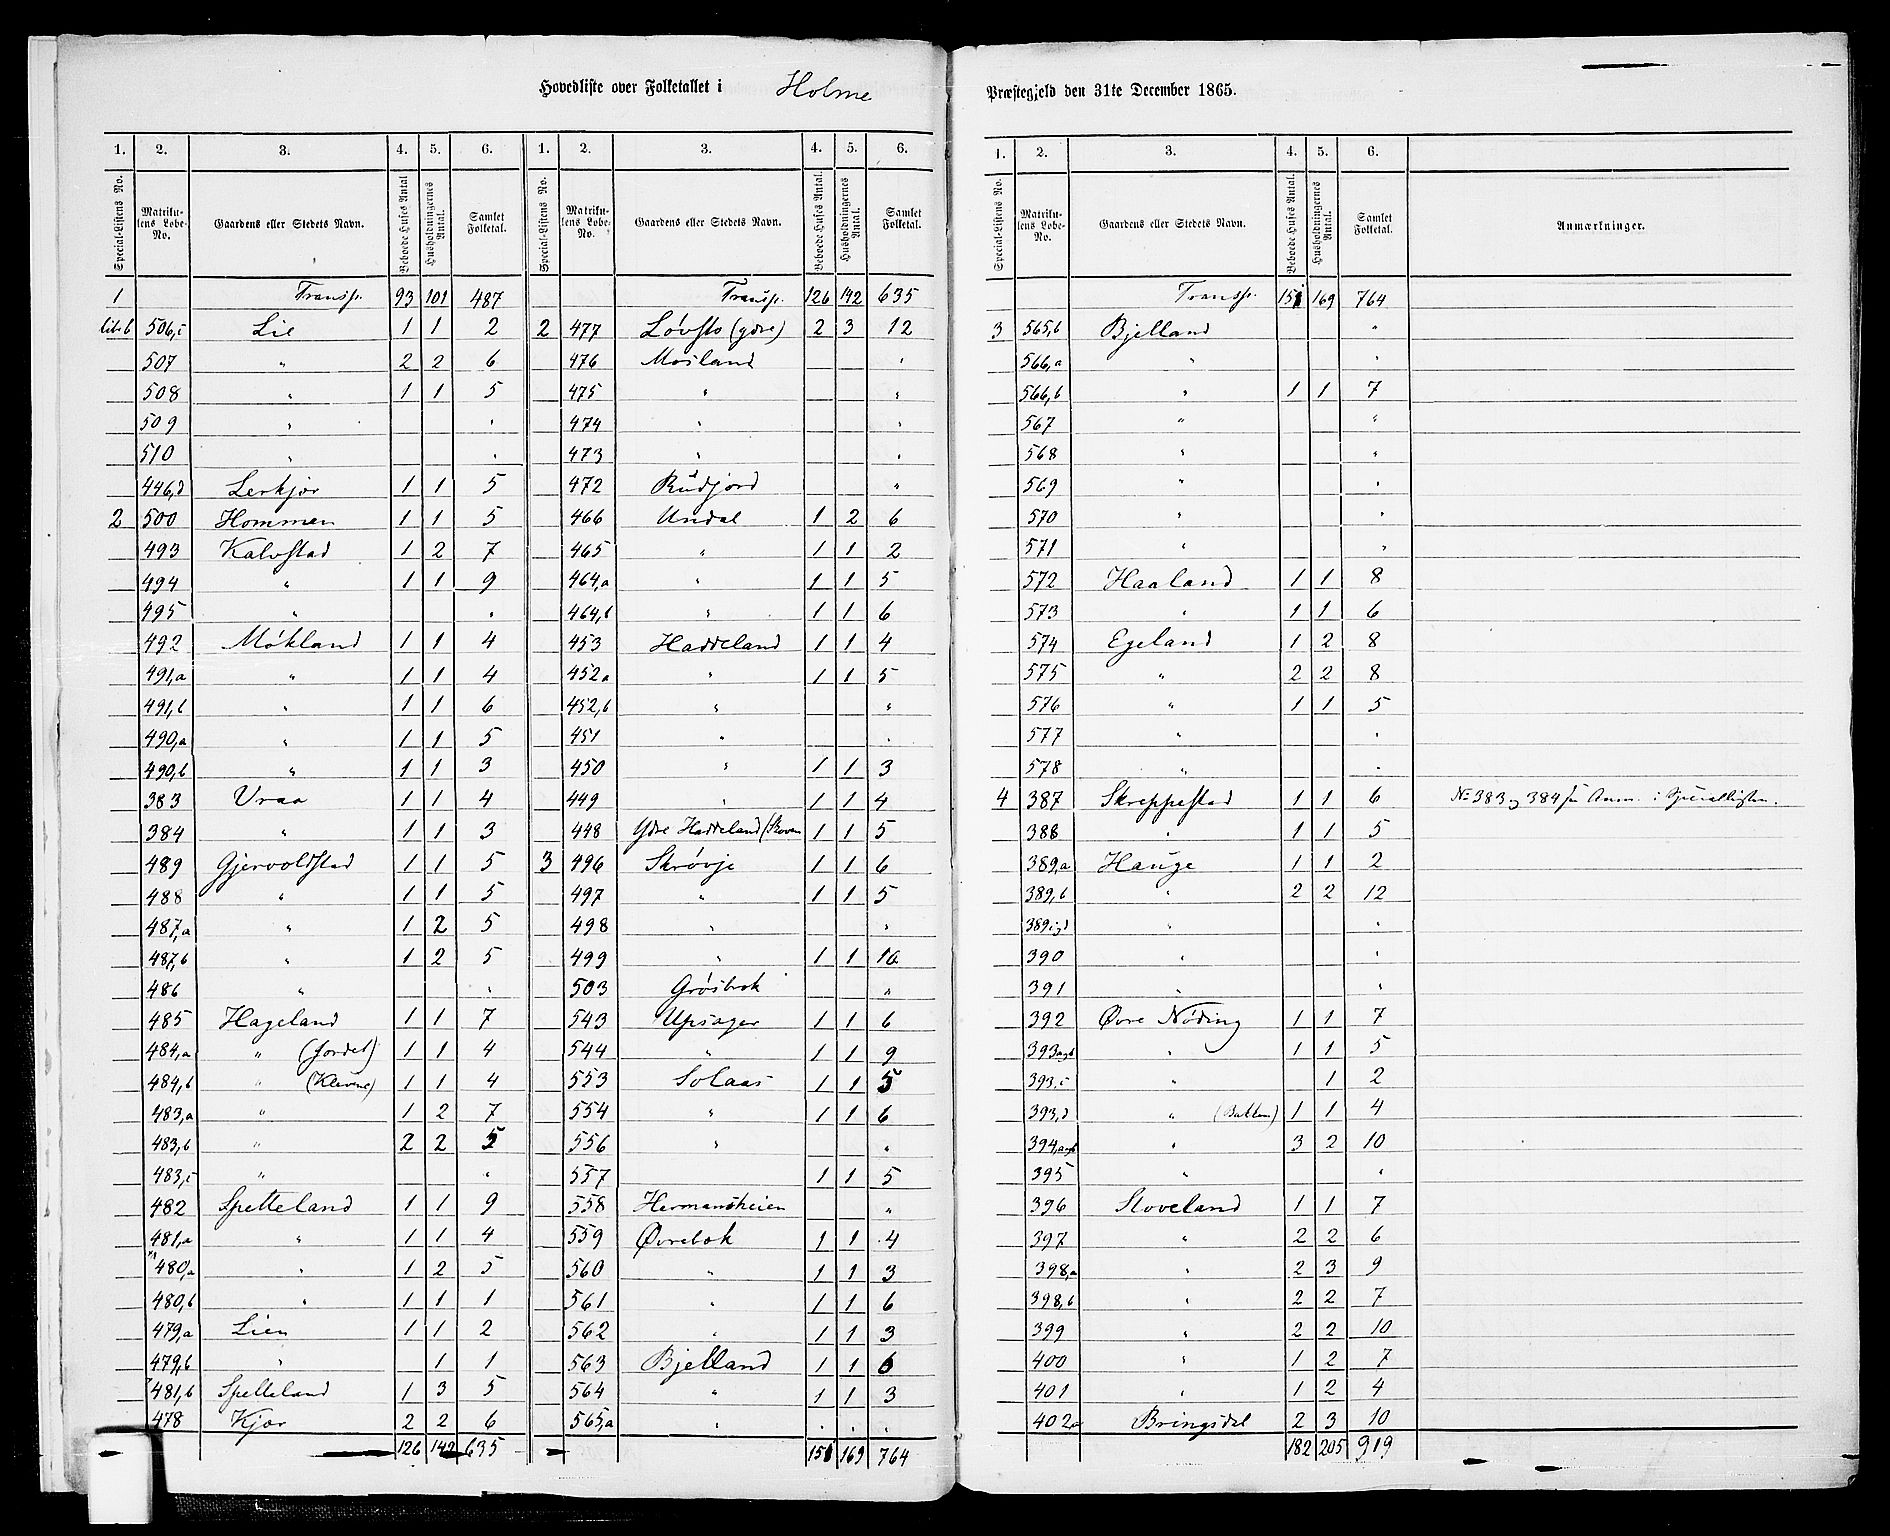 Hovedliste over Folketallet i Holme Præstegjeld den 31te December 1865.
1. 2. 3. 4. 5. 6. 1. 2. 3. 4. 5. 6.
Special-Listens No. Matrikulens Løbe-No. Gaardens eller Stedets Navn. Beboede Huses Antal Husholdningernes Antal. Samlet Folketal. Special-Listens No. Matrikulens Løbe-No. Gaardens eller Stedets Navn. Beboede Huses Antal. Husholdningernes Antal. Samlet Folketal.
1 Transp. 93 101 487 Transp. 126 142 635
litr b 506,c Lie 1 1 2 2 477 Løvsto (ydre) 2 3 12
507 " 2 2 6 476 Mosland "
508 " 1 1 5 475 " "
509 " " 474 " "
510 " " 473 " "
446,d Lerkjær 1 1 5 472 Rudjord "
2 500 Hommen 1 1 5 466 Undal 1 2 6
493 Kalvstad 1 2 7 465 " 1 1 2
494 " 1 1 9 464,a " 1 1 5
495 " " 464,b " 1 1 6
492 Møkland 1 1 4 453 Haddeland 1 1 4
491,a " 1 1 4 452a " 1 1 5
491,b " 1 1 6 452,b " "
490,a " 1 1 5 451 " "
490,b " 1 1 3 450 " 1 1 3
383 Vraa 1 1 4 449 " 1 1 4
384 " 1 1 3 448 Ydre Haddeland (Skoven 1 1 5
489 Gjervoldstad 1 1 5 3 496 Skrøvje 1 1 6
488 " 1 1 5 497 " 1 1 5
487,a " 1 2 5 498 " "
487,b " 1 2 5 499 " 1 1 10
486 " " 503 Grøsbok "
485 Hageland 1 1 7 543 Upsager 1 1 6
484,a " (Jordet) 1 1 4 544 " 1 1 9
484,b " (Klevne) 1 1 4 553 Solaas 1 1 5
483,a " 1 2 7 554 " 1 1 6
483,b " 2 2 5 556 " "
483,c " " 557 " 1 1 5
482 Spelleland 1 1 9 558 Hermansheien "
481,a " 1 1 4 559 Øvrebok 1 1 4
480,a " 1 2 5 560 " 1 1 3
480,b " 1 1 1 561 " 1 1 6
479,a Lien 1 1 2 562 " 1 1 3
479,b " 1 1 563 Bjelland 1 1 6
481,b Spelleland 1 3 5 564 " 1 1 3
478 Kjær 2 2 6 565,a " " " "
126 142 635 151 169 764
1. 2. 3. 4. 5. 6.
Special-Listens No. Matrikulens Løbe-No. Gaardens eller Stedets Navn. Beboede Huses Antal. Husholdningernes Antal. Samlet Folketal. Anmærkninger.
Transp. 151 169 764
3 565,b Bjelland "
566,a " "
566,b " 1 1 7
567 " "
568 " "
569 " "
570 " "
571 " "
572 Haaland 1 1 8
573 " 1 1 6
574 Egeland 1 2 8
575 " 2 2 8
576 " 1 1 5
577 " "
578 " "
4 387 Skreppestad 1 1 6 No 383 og 384 se Anm. i Speciallisten.
388 " 1 1 5
389,a Hauge 1 1 2
389,b " 2 2 12
389 c,d " "
390 " "
391 " "
392 Øvre Nøding 1 1 7
393 a og b " 1 1 5
393,c " 1 2
393,d " (Bakken) 1 1 4
394, a og b " 3 2 10
395 " "
396 Stoveland 1 1 7
397 " 2 2 6
398,a " 2 3 9
398,b " 2 2 7
399 " 2 2 10
400 " 1 2 7
401 " 1 2 4
402a Bringsdal 2 3 10
182 205 919